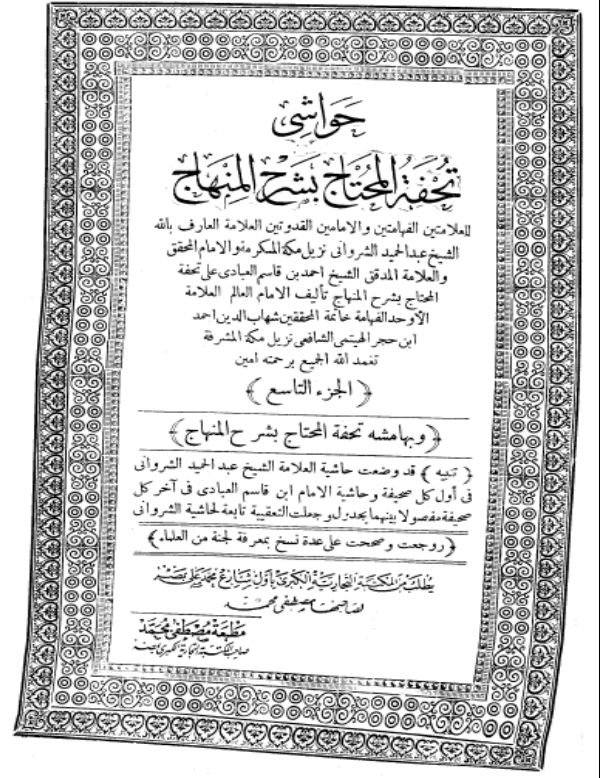 حواشى
تحفة المحتاج بشرح المنهاج
للعلامتين الفهامتين والامامين القدوتين العلامة العارف بالله
الشيخ عبد الحميد الشروانى نزيل مكة المكرمة والامام المحقق
والعلامة المدقق الشيخ احمد بن قاسم العبادى على تحفة
المحتاج بشرح المنهاج تأليف الامام العالم العلامة
الأوحد الفهامة خاتمة المحققين شهاب الدين احمد
ابن حجر الهيتمى الشافعى نزيل مكة المشرفة
تغمد الله الجميع برحمته امين
﴿ الجزء التاسع ﴾
﴿ وبهامشه تحفة المحتاج بشرح المنهاج ﴾
﴿ تنبيه ﴾ قد وضعت حاشية العلامة الشيخ عبد الحميد الشروانى
فى أول كل صحيفة وحاشية الامام ابن قاسم العبادى فى آخر كل
صحيفة مفصولا بينهما بجدول وجعلت التعقيبة تابعة لحاشية الشروانى
﴿ روجعت وصححت على عدة نسخ بمعرفة لجنة من العلماء ﴾
يطلب من المكتبة التجارية الكبرى بأول شارع محمد على بمصر
لصاحبها مصطفى محمد
مطبعة مصطفى محمد
صاحب المكتبة التجارية الكبرى بمصر